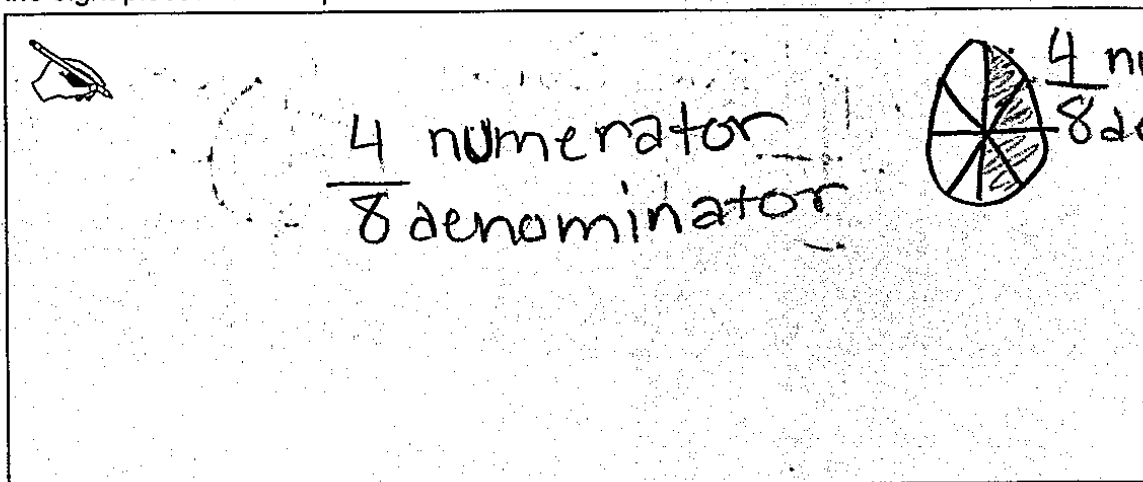 4 numerator
8 denominator
4
8